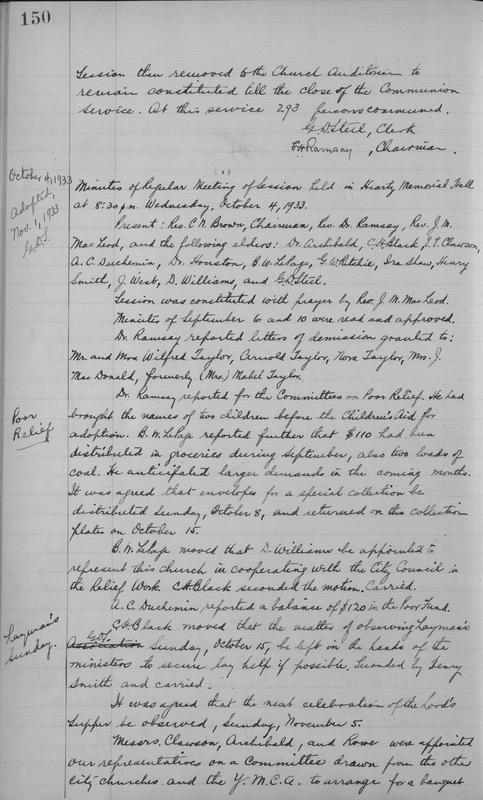 150
Session then removed to the Church Auditorium to
remain constituted till the close of the Communion
Service. At this service 293 persons communed.
G.D. Steel, Clerk
F.H. Ramsay, Chairman.
October 4, 1933
Adopted,
Nov. 1, 1933
G.D.S.
Minutes of Regular Meeting of Session held in Heartz Memorial Hall
at 8:30 p.m. Wednesday, October 4, 1933.
Present: Rev. C.N. Brown, Chairman, Rev. Dr. Ramsay, Rev. J.M.
MacLeod, and the following elders: Dr. Archibald, C.H. Black, J.T. Clawson,
A.C. Duchemin, Dr. Houston, B.W. LePage, G.W. Ritchie, Ira Shaw, Henry
Smith, J. West, D. Williams, and G.D. Steel.
Session was constituted with prayer by Rev. J.M. MacLeod.
Minutes of September 6 and 10 were read and approved.
Dr. Ramsay reported letters of demission granted to:
Mr. and Mrs Wilfred Taylor, Arnold Taylor, Nora Taylor, Mrs. J.
MacDonald, formerly (Mrs.) Mabel Taylor.
Poor
Relief
Dr. Ramsay reported for the Committee on Poor Relief. He had
brought the names of two children before the Children's Aid for
adoption. B.W. LePage reported further that $110 had been
distributed in groceries during September, also two loads of
coal. He anticipated larger demands in the coming months.
It was agreed that envelops for a special collection be
distributed Sunday, October 8, and returned on the collection
plates on October 15.
B.W. LePage moved that D. Williams be appointed to
represent this church in cooperating with the City Council in
the Relief Work. C.H. Black seconded the motion. Carried.
A.C. Duchemin reported a balance of $120 in the Poor Fund.
Layman's
Sunday.
C.H. Black moved that the matter of observing Layman's
G.D.S.
Association Sunday, October 15, be left in the hands of the
ministers to secure lay help if possible. Seconded by Henry
Smith and carried.
It was agreed that the next celebration of the Lord's
Supper be observed, Sunday, November 5.
Messrs. Clawson, Archibald, and Rowe were appointed
our representatives on a Committee drawn from the other
City churches and the Y.M.C.A. to arrange for a banquet